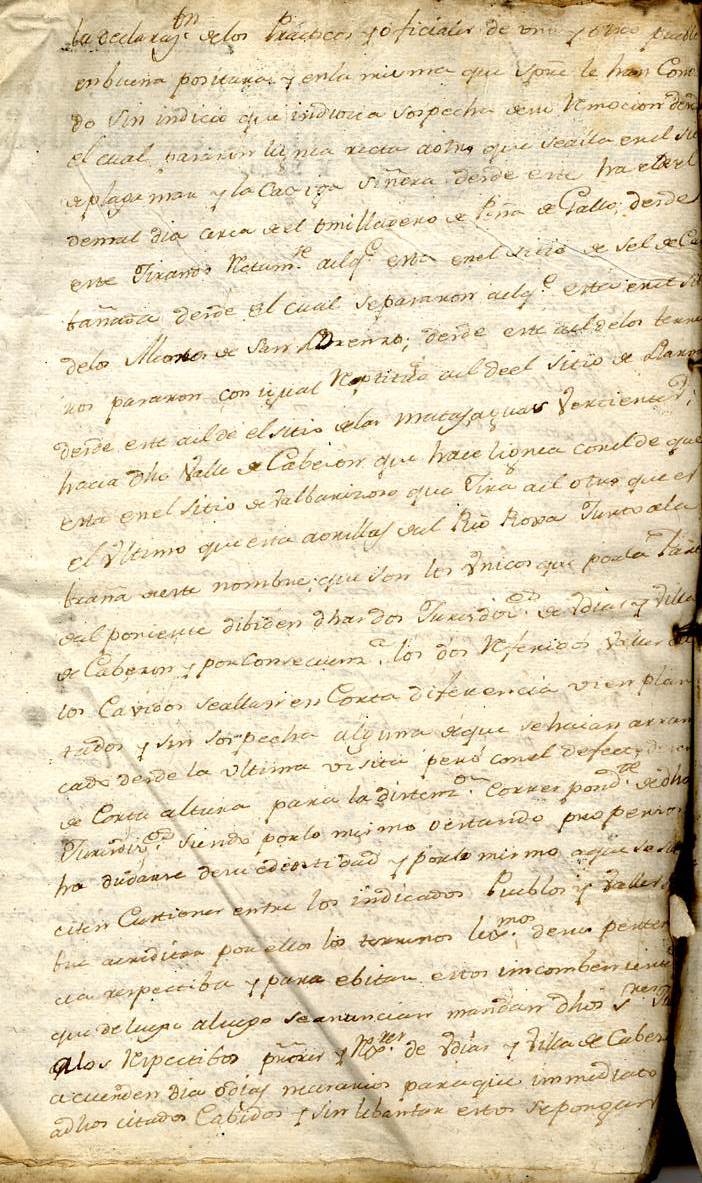 la declaraz.on de los Practicos y oficiales de uno y otro pueblo
en buena positura y en la misma que spre. le han Cono
do sin indicio que induzca sospecha de su Remocion desde
el cual pararon linea recta a otro que se alla en el
de plaga mar y la Caviga desde este ha el del
de mal dia cerca de el omilladero de Peña de Gallo desde
este Tirando Rectam.te a el q.e esta en el sitio de Sel de Ca
bañada desde el cual separaron a el q.e esta en el sit
de los Montes de San Lorenzo; desde este a el de los terre
ros pararon con igual Rectitud a el de el sitio de
desde este a el de el sitio de las matas, aguas Vercientes
hacia dho Valle de Cabezon que hace lignea con el de que
esta en el sitio de que Tira a el otro que es
el Ultimo que esta a orillas del Rio Junto a la
braña de este nombre, que son los Unicos que por la parte
del poniente dibiden dhas dos Jurisdic.es de Udias y Villa
de Cabezon y por Consecuenz.a los dos Referidos Valles
los Cavidos se allan en Corta diferencia vien plan
tados y sin sospecha alguna de que se haian arran
cado desde la Ultima visita pero con el defecto de
de Corta altura para la distenz.a Correspond.te de dha
Jurisdiz.on siendo por lo mismo
ha dudarse de su edentidad y por lo mismo a que se sus
citen Custiones entre los indicados Pueblos y Valles
bre acreditar por ellos los terrenos lex.mos de su perten
cia respectiba y para ebitar estos imcombenientes
que de luego a luego se anuncian mandan dhos S.res
a los Respectibos y Rex.res de Udias y Villa de Cabezon
acuerden dia o dias necesarios para que immediato
a dhos citados Cabidos y sin lebantar estos se pongan